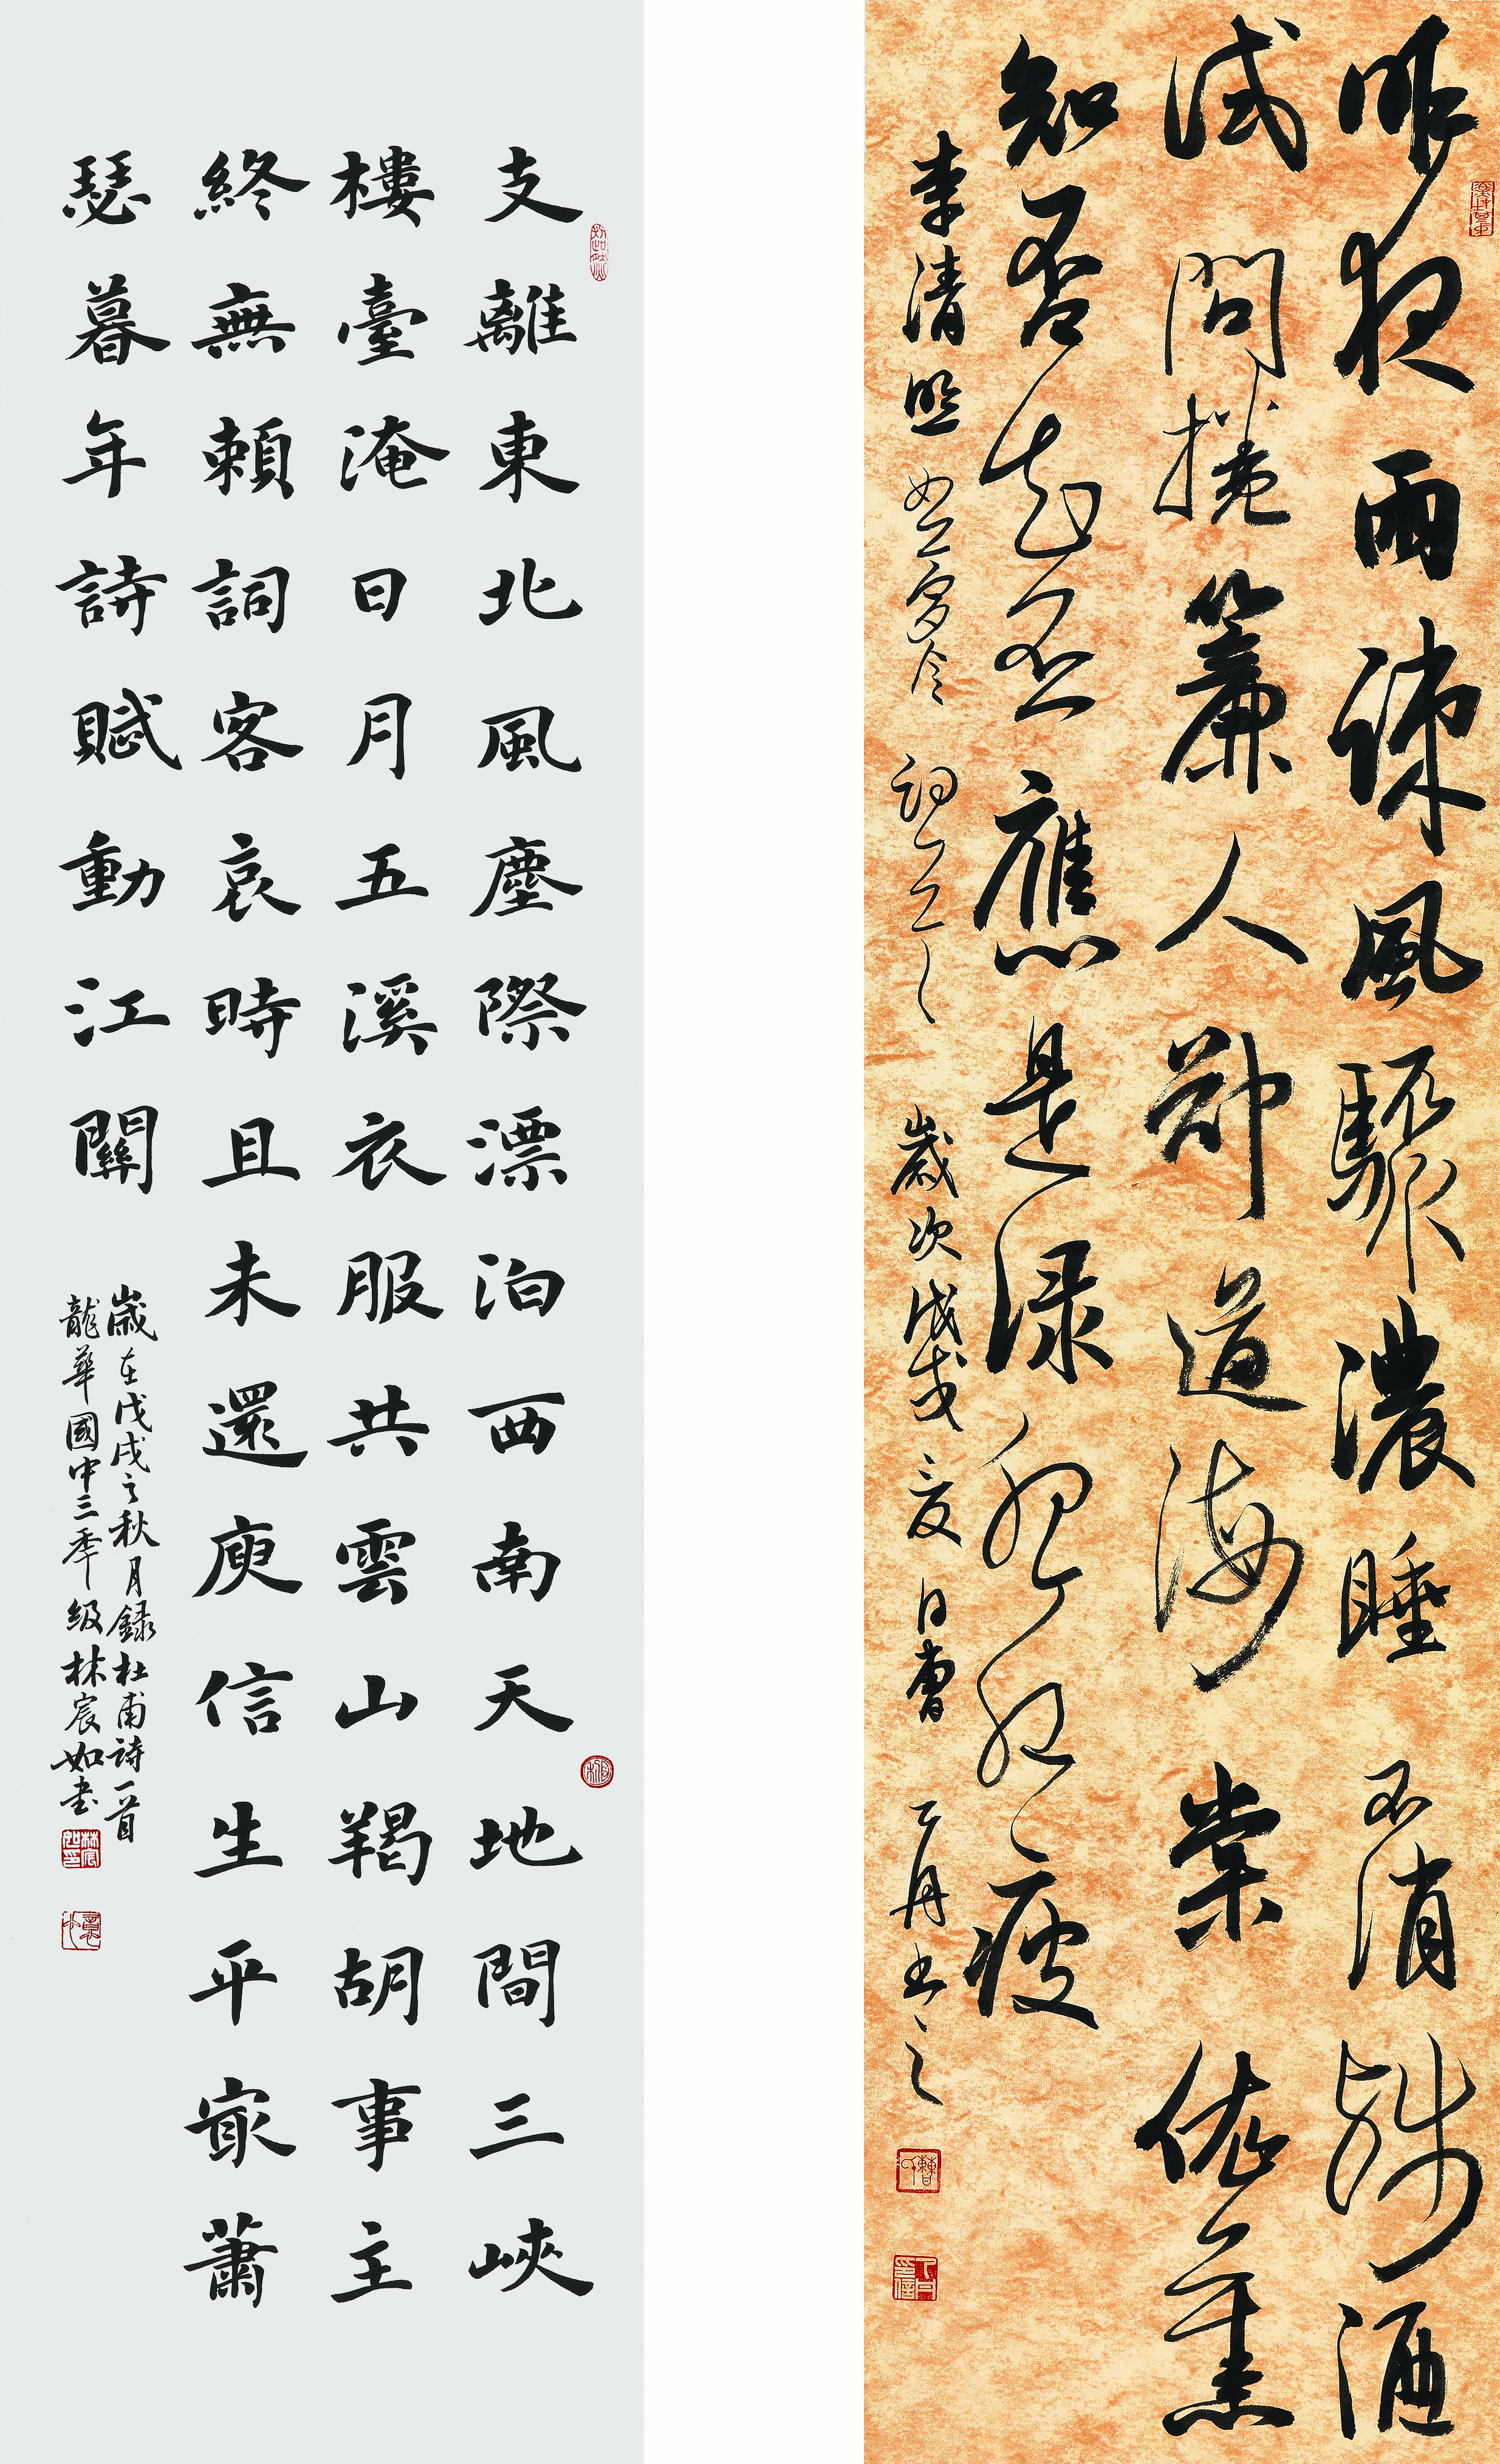 昨夜雨疎風驟濃睡不消殘酒
試問捲簾人卻道海棠依舊
知否知否應是綠肥紅瘦
李清照如夢令詞 歲次戊戌夏日曹丁月書之
支離東北風塵際漂泊西南天地間三峽
樓臺淹日月五溪衣服共雲山羯胡事主
終無賴詞客哀時且未還庾信生平最蕭
瑟暮年詩賦動江關
歲在戊戌之秋月録杜甫詩一首
龍華國中三年級林宸如書
林宸如印